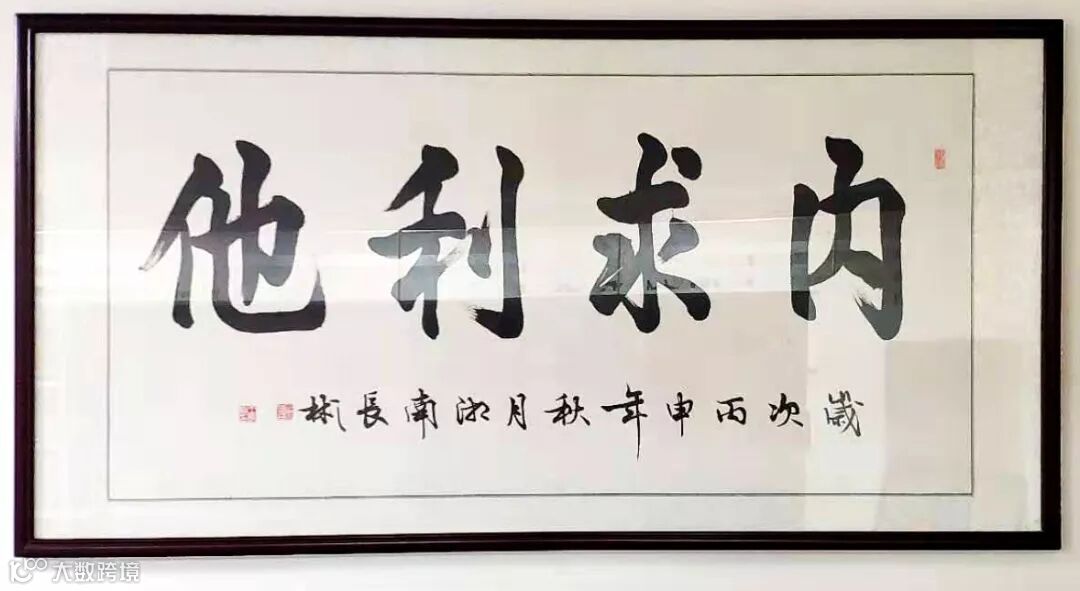 内求利他
歲次丙申年秋月湖南長彬
大数跨境